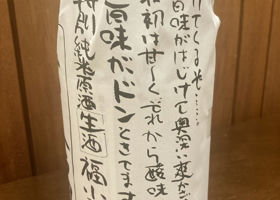 けてくるぞ……
旨味がはじけて奥深い
最初は甘〜くそれから酸味
旨味がドンときてます
特別純米原酒 生酒 福小